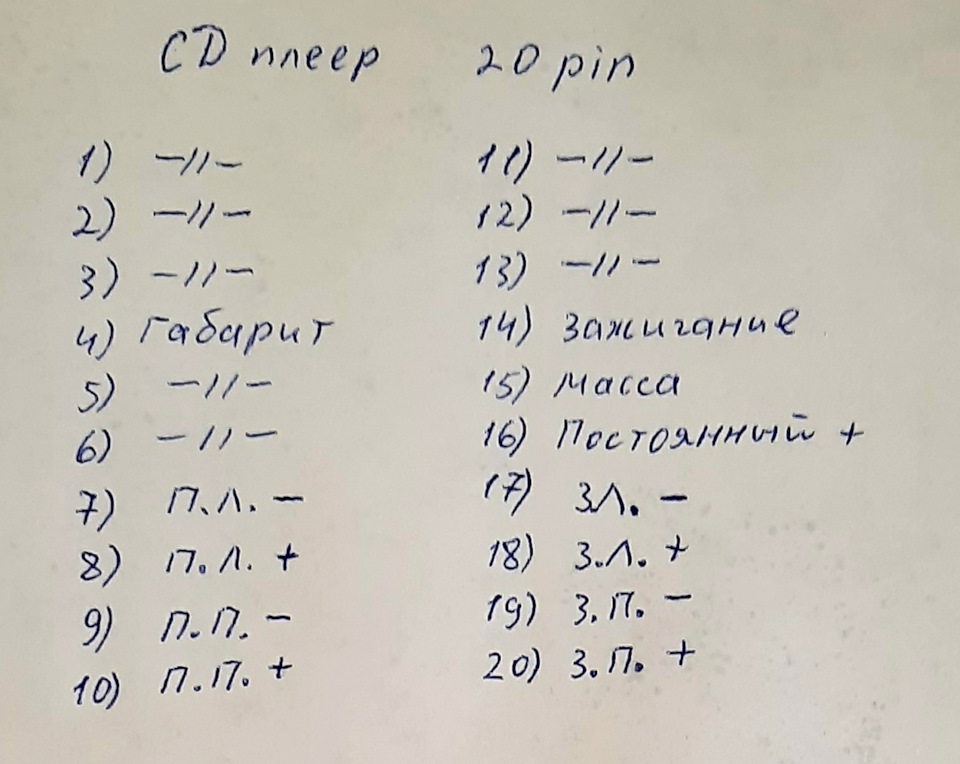 CD плеер 20 pin
1) –//– 11) –//–
2) –//– 12) –//–
3) –//– 13) –//–
4) Габарит 14) Зажигание
5) –//– 15) Масса
6) –//– 16) Постоянный +
7) П.Л. – 17) З.Л. –
8) П.Л. + 18) З.Л. +
9) П.П. – 19) З.П. –
10) П.П. + 20) З.П. +